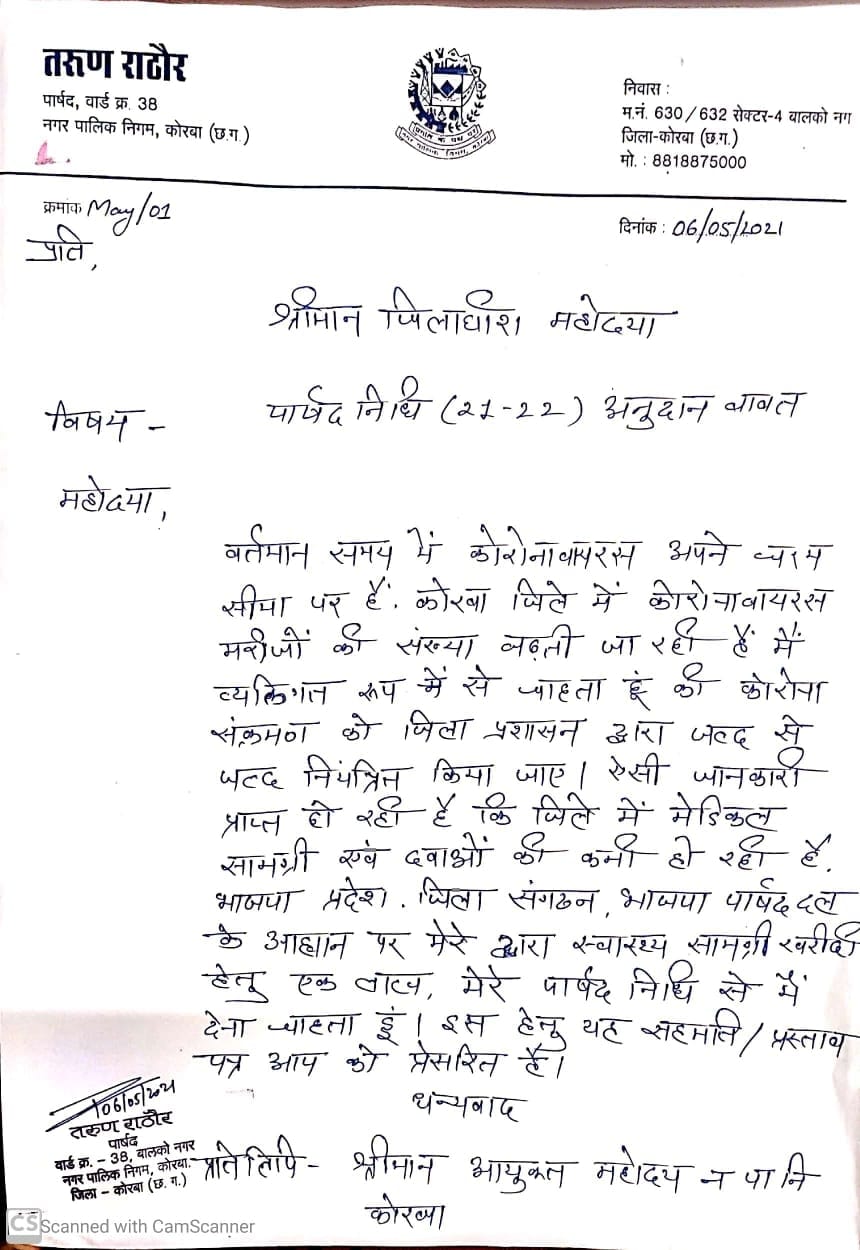 तरुण राठौर
पार्षद, वार्ड क्र. 38
नगर पालिक निगम, कोरबा (छ.ग.)
निवास :
म.नं. 630/632 सेक्टर-4 बालको नग
जिला-कोरबा (छ.ग.)
मो. : 8818875000
क्रमांक May/01
दिनांक : 06/05/2021
प्रति,
श्रीमान जिलाधीश महोदया
विषय - पार्षद निधि (21-22) अनुदान बाबत
महोदया,
वर्तमान समय में कोरोनावायरस अपने चरम
सीमा पर हैं. कोरबा जिले में कोरोनावायरस
मरीजों की संख्या बढ़ती जा रही हैं में
व्यक्तिगत रूप में से चाहता हूं की कोरोना
संक्रमण को जिला प्रशासन द्वारा जल्द से
जल्द नियंत्रित किया जाए। ऐसी जानकारी
प्राप्त हो रही है कि जिले में मेडिकल
सामग्री एवं दवाओं की कमी हो रही है.
भाजपा प्रदेश. जिला संगठन, भाजपा पार्षद दल
के आह्वान पर मेरे द्वारा स्वास्थ्य सामग्री खरीदी
हेतु एक लाख, मेरे पार्षद निधि से मैं
देना चाहता हूं। इस हेतु यह सहमति/प्रस्ताव
पत्र आप को प्रेसरित है।
धन्यवाद
06/05/2021
तरुण राठौर
पार्षद
वार्ड क्र. - 38, बालको नगर
नगर पालिक निगम, कोरबा.
जिला - कोरबा (छ. ग.)
प्रतिलिपि - श्रीमान आयुक्त महोदय न पा नि
कोरबा
CS Scanned with CamScanner